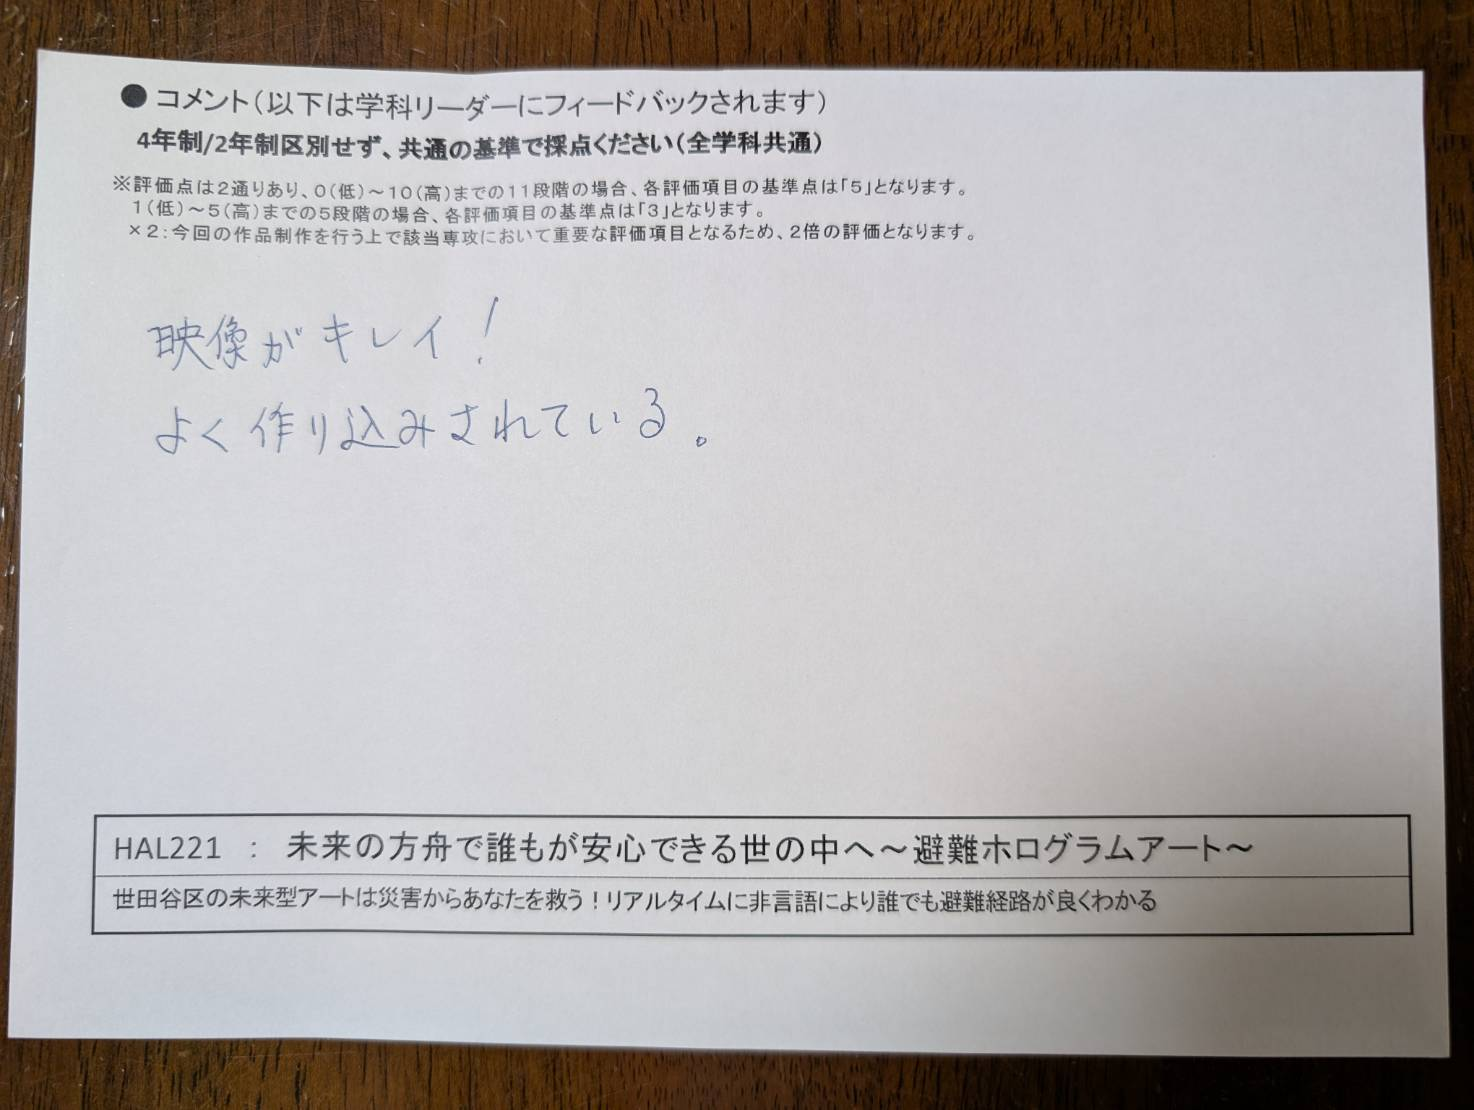 ●コメント(以下は学科リーダーにフィードバックされます)
4年制/2年制区別せず、共通の基準で採点ください(全学科共通)
※評価点は2通りあり、0(低)～10(高)までの11段階の場合、各評価項目の基準点は「5」となります。
1(低)～5(高)までの5段階の場合、各評価項目の基準点は「3」となります。
×2:今回の作品制作を行う上で該当専攻において重要な評価項目となるため、2倍の評価となります。
映像がキレイ!
よく作り込みされている。
HAL221 : 未来の方舟で誰もが安心できる世の中へ～避難ホログラムアート～
世田谷区の未来型アートは災害からあなたを救う!リアルタイムに非言語により誰でも避難経路が良くわかる